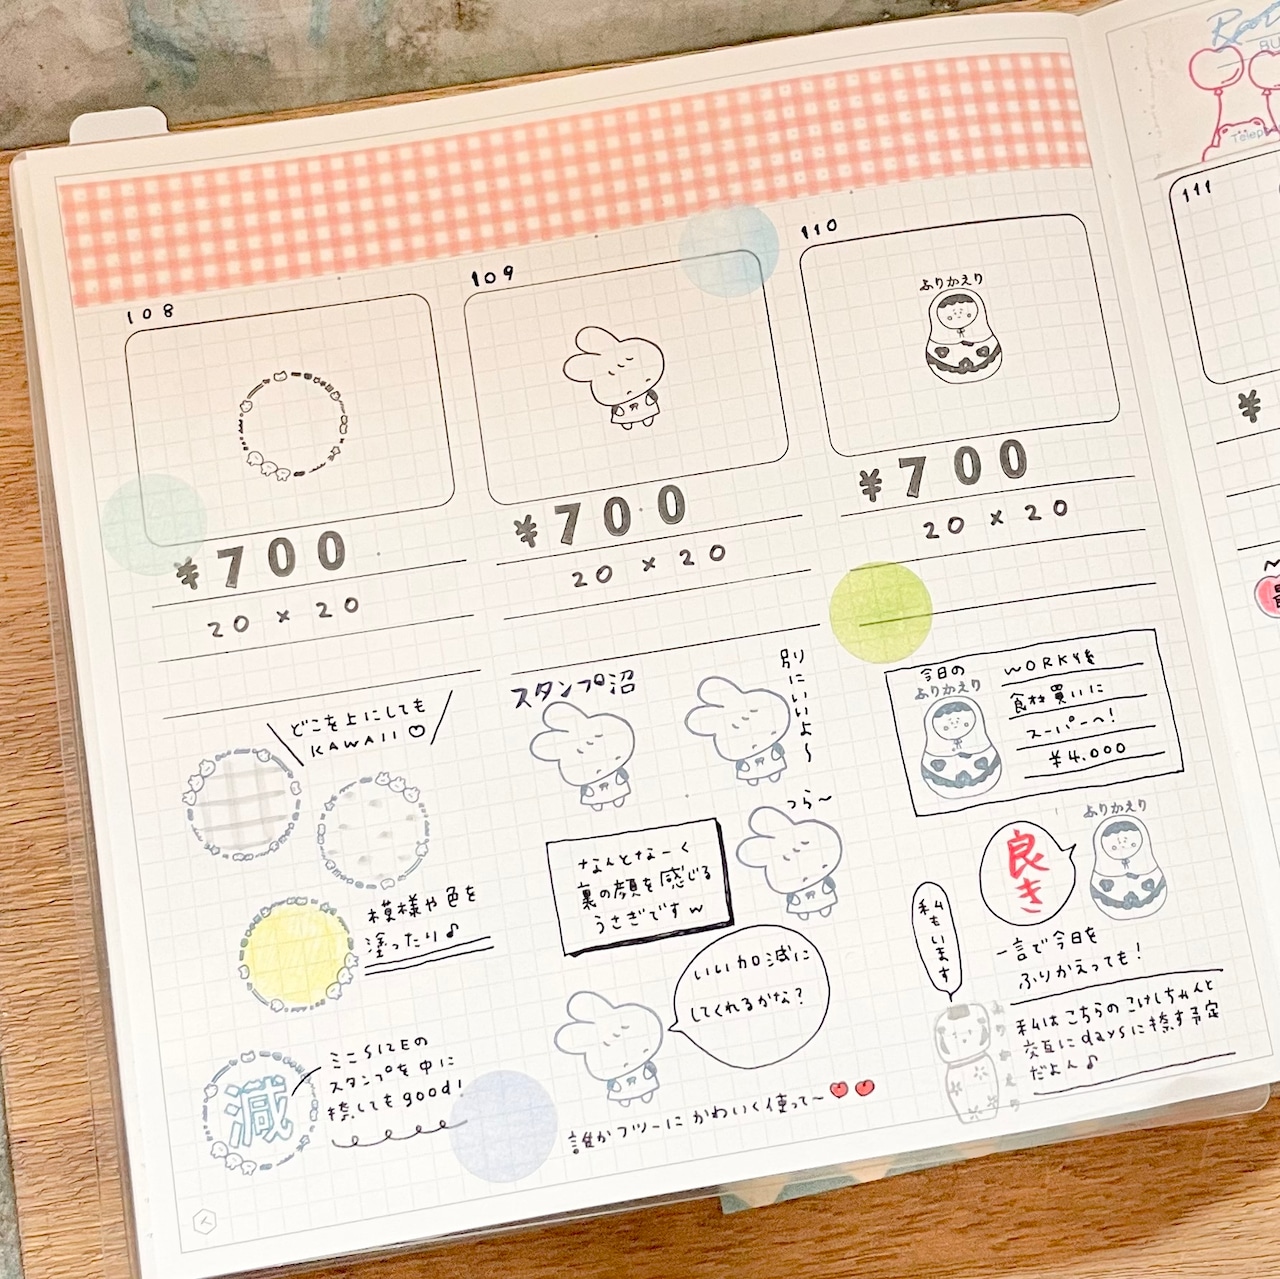 108
¥700
20 × 20
109
¥700
20 × 20
110
ふりかえり
¥700
20 × 20
111
¥
どこを上にしても
KAWAII♡
模様や色を
塗ったり♪
減
ミニSIZEの
スタンプを中に
捺してもgood!
スタンプ沼
別にいいよ〜
つら〜
なんとなーく
裏の顔を感じる
うさぎですw
いい加減に
してくれるかな?
誰かフツーにかわいく使って〜
今日の
ふりかえり
WORK後
食材買いに
スーパーへ!
¥4.000
ふりかえり
良き
私もいます
一言で今日を
ふりかえっても!
ふりかえり
私はこちらのこけしちゃんと
交互にdaysに捺す予定
だよん♪